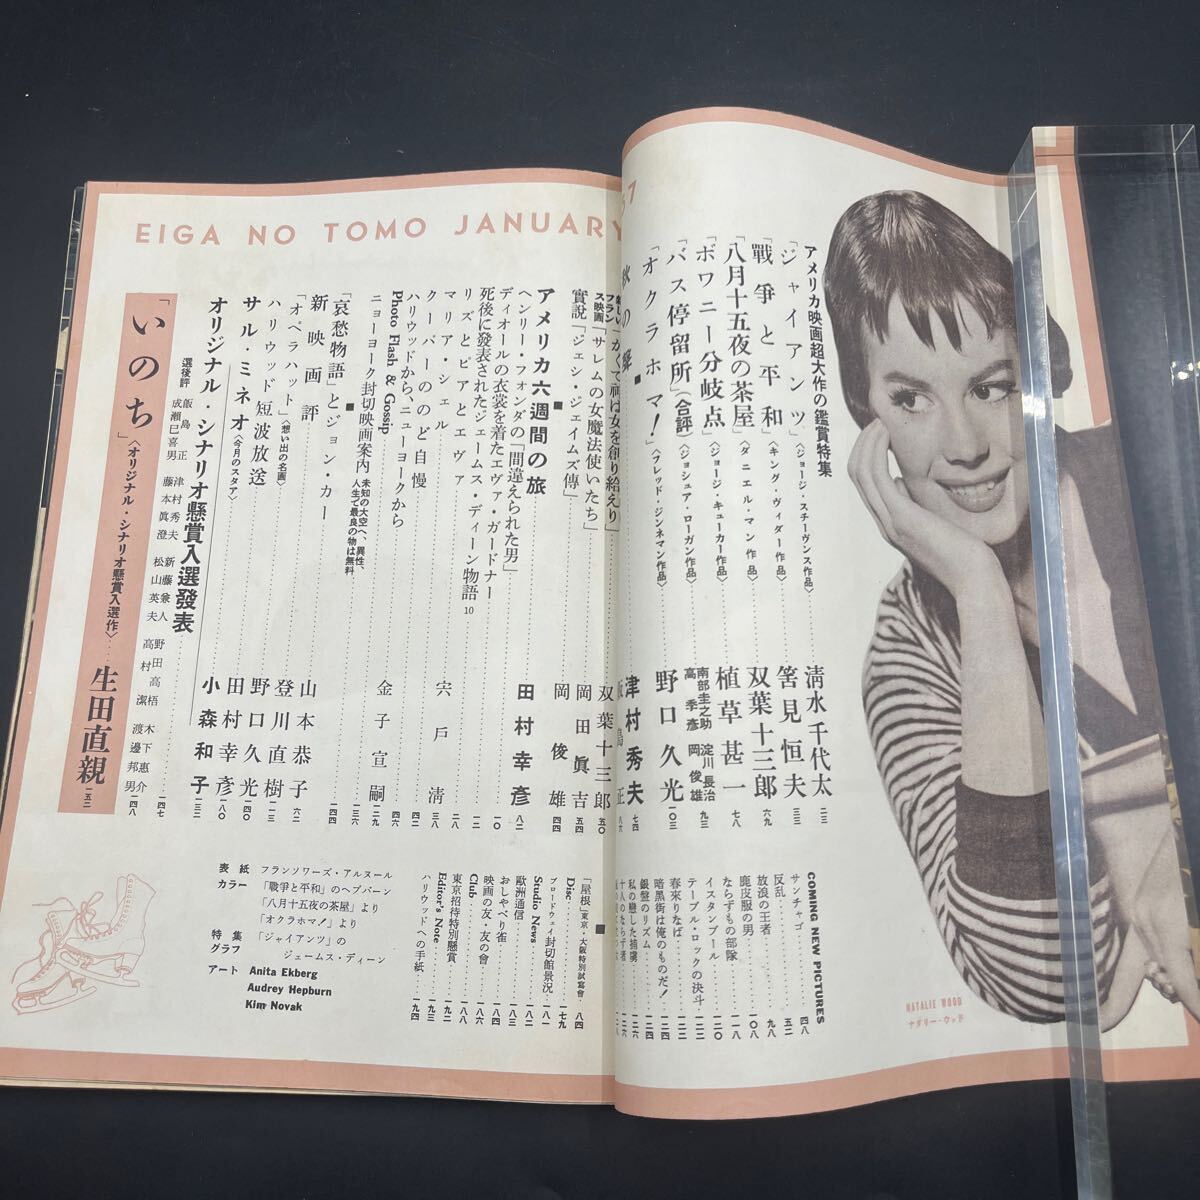 EIGA NO TOMO JANUARY
57
アメリカ映画超大作の鑑賞特集
「ジャイアンツ」〈ジョージ・スチーヴンス作品〉 清水千代太 二三
「戰爭と平和」〈キング・ヴィダー作品〉 筈見恒夫 三三
「八月十五夜の茶屋」〈ダニエル・マン作品〉 双葉十三郎 六九
「ボワニー分岐点」〈ジョージ・キューカー作品〉 植草甚一 七八
「バス停留所」(合評)〈ジョシュア・ローガン作品〉 南部圭之助 淀川長治 高季彦 岡俊雄 九三
「オクラホマ!」〈フレッド・ジンネマン作品〉 野口久光 一〇三
津村秀夫 七四
飯島正 八六
「かくて神は女を創り給えり」 双葉十三郎 五〇
「サレムの女魔法使いたち」 岡田眞吉 五四
實説「ジェシ・ジェイムズ傳」 岡俊雄 四四
アメリカ六週間の旅 田村幸彦 八二
ヘンリー・フォンダの「間違えられた男」 一〇
ディオールの衣裳を着たエヴァ・ガードナー 一二
死後に發表されたジェームス・ディーン物語 10
リズとピアとエヴァ
マリア・シェル 二八
クーパーののど自慢 宍戸清 三八
ハリウッドから、ニューヨークから 四六
Photo Flash & Gossip
ニョーヨーク封切映画案内 未知の大空へ、異性、人生で最良の物は無料 金子宣嗣 二九
一三六
「哀愁物語」とジョン・カー 一四四
新映画評
「オペラハット」〈想い出の名画〉 山本恭子 六二
ハリウッド短波放送 登川直樹 一二三
サル・ミネオ〈今月のスタア〉 野口久光
田村幸彦 一八〇
小森和子 一三三
オリジナル・シナリオ懸賞入選發表 一四七
選後評 飯島正 津村秀夫 新藤兼人 野田高梧 木下惠介
成瀬巳喜男 藤本眞澄 松山英夫 高村潔 渡邊邦男 一四八
「いのち」〈オリジナル・シナリオ懸賞入選作〉 生田直親 一五二
COMING NEW PICTURES
サンチャゴ 四八
反乱 五二
放浪の王者 九八
鹿皮服の男 一〇八
ならずもの部隊 一一八
イスタンブール 一二〇
テーブル・ロックの決斗 一二二
春來りなば 一二二
暗黒街は俺のものだ! 一二四
銀盤のリズム 一二四
私の戀した捕虜 一二六
十人のならず者 一二六
「屋根」東京・大阪特別試寫會 八四
Disc 一七九
ブロードウェイ封切館景況 一八一
Studio News 一八二
歐洲通信 一八三
おしゃべり雀 一八四
映画の友・友の會 一八六
Club 一八八
東京招待特別懸賞 一九二
Editor's Note 一九三
ハリウッドへの手紙 一九四
表紙 フランソワーズ・アルヌール
カラー 「戰爭と平和」のヘプバーン
「八月十五夜の茶屋」より
「オクラホマ!」より
特集グラフ 「ジャイアンツ」の
ジェームス・ディーン
アート Anita Ekberg
Audrey Hepburn
Kim Novak
NATALIE WOOD
ナタリー・ウッド